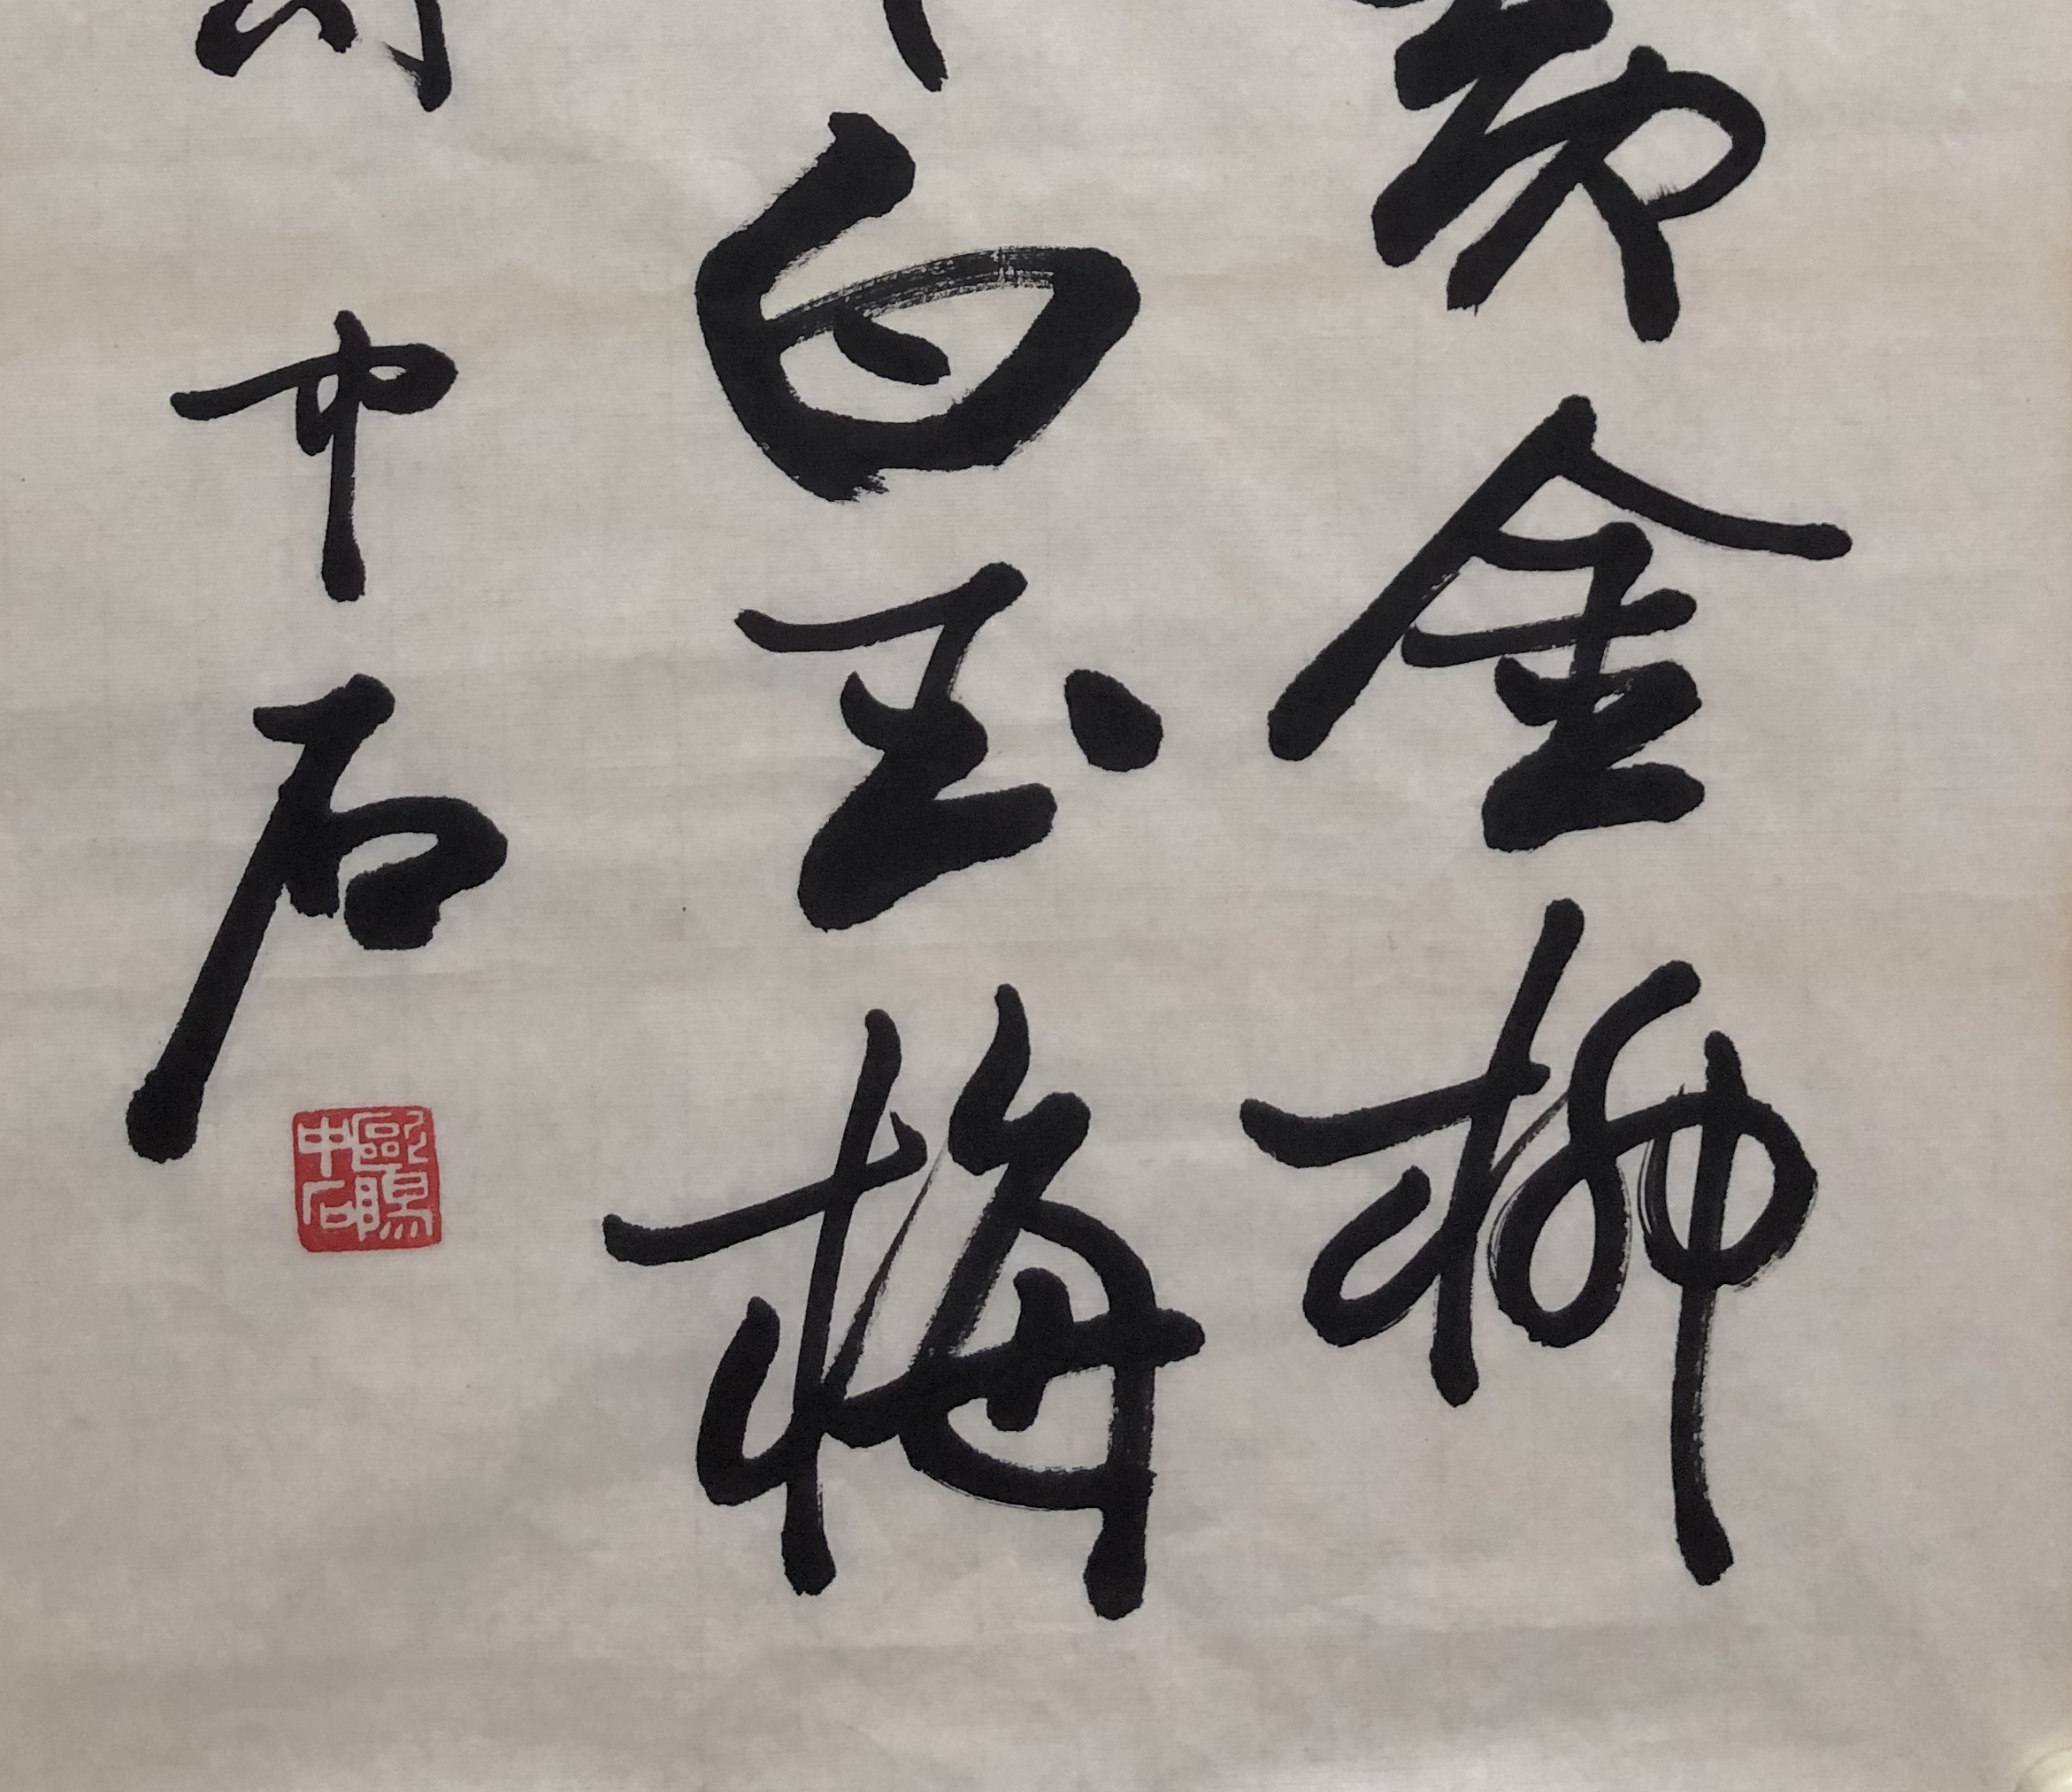 黄金柳
白玉梅
中石
歐陽中石